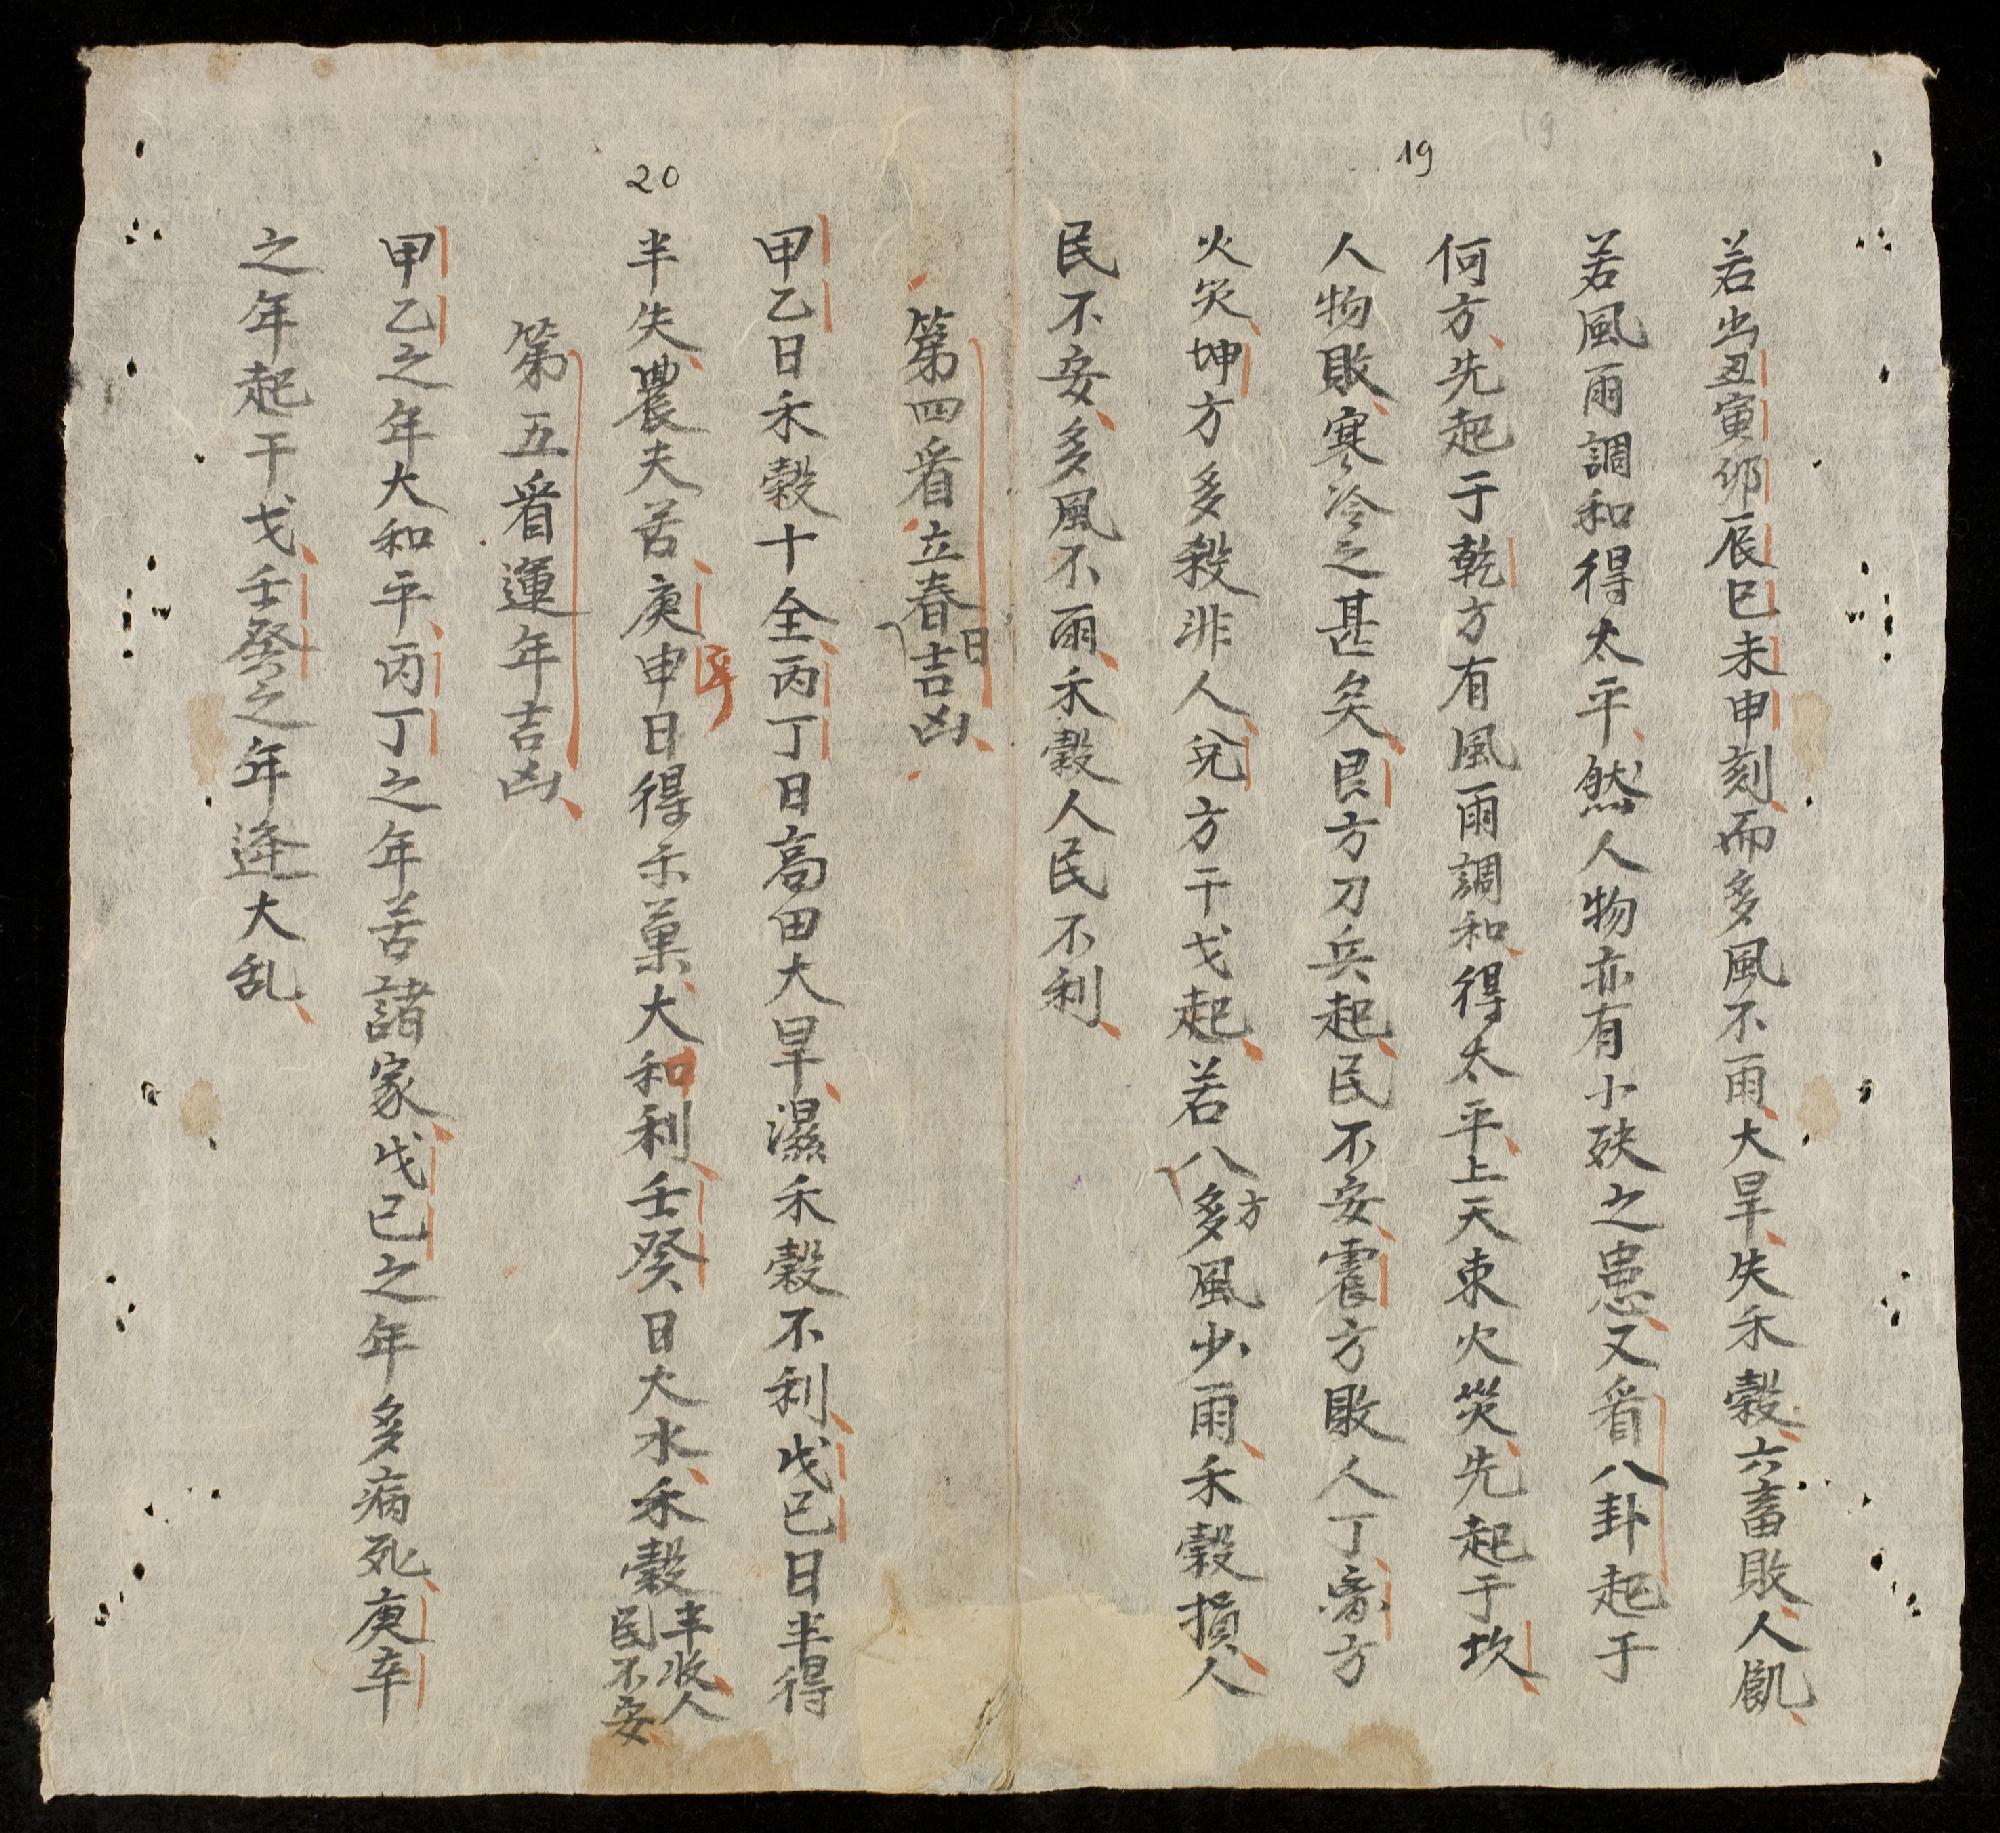 19
若出丑寅卯辰巳未申刻而多風不雨大旱失禾穀六畜敗人飢
若風雨調和得太平然人物亦有小殃之患又看八卦起于
何方先起于乾方有風雨調和得太平上天束火災先起于坎
人物敗寒冷之甚矣艮方刀兵起民不安震方敗人丁巽方
火災坤方多殺非人兌方干戈起若八方多風少雨禾穀損人
民不安多風不雨禾穀人民不利
第四看立春日吉凶
20
甲乙日禾穀十全丙丁日高田大旱濕禾穀不利戊己日半得
半失農夫苦庚申辛日得示菓大和利壬癸日大水禾穀丰收人民不安
第五看運年吉凶
甲乙之年大和平丙丁之年苦諸家戊己之年多病死庚辛
之年起干戈壬癸之年逢大乱